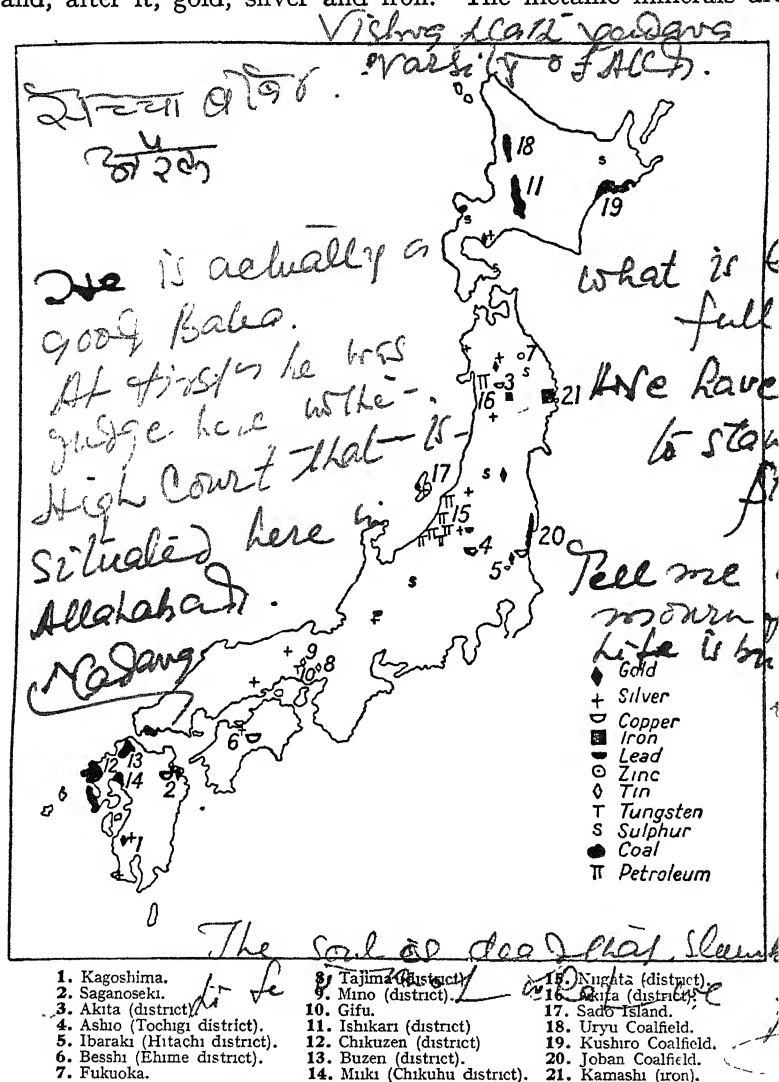 and, after it, gold, silver and iron. The metallic minerals are
Vishwa
Varsity of
सच्चा
is actually a
good Baba.
At first he was
judge here in the
High Court that is
situated here in
Allahabad.
what is
full
We have
to
Tell me
Life is
18
11
19
7
3
16
21
17
15
4
5
20
9
10
8
6
12
13
14
2
1
Gold
Silver
Copper
Iron
Lead
Zinc
Tin
Tungsten
Sulphur
Coal
Petroleum
The soul is dead that
Life
1. Kagoshima.
2. Saganoseki.
3. Akita (district)
4. Ashio (Tochigi district).
5. Ibaraki (Hitachi district).
6. Besshi (Ehime district).
7. Fukuoka.
8. Tajima (district)
9. Mino (district).
10. Gifu.
11. Ishikari (district)
12. Chikuzen (district)
13. Buzen (district).
14. Miiki (Chikuhu district).
15. Niigata (district).
16. Akita (district).
17. Sado Island.
18. Uryu Coalfield.
19. Kushiro Coalfield.
20. Joban Coalfield.
21. Kamashi (iron).